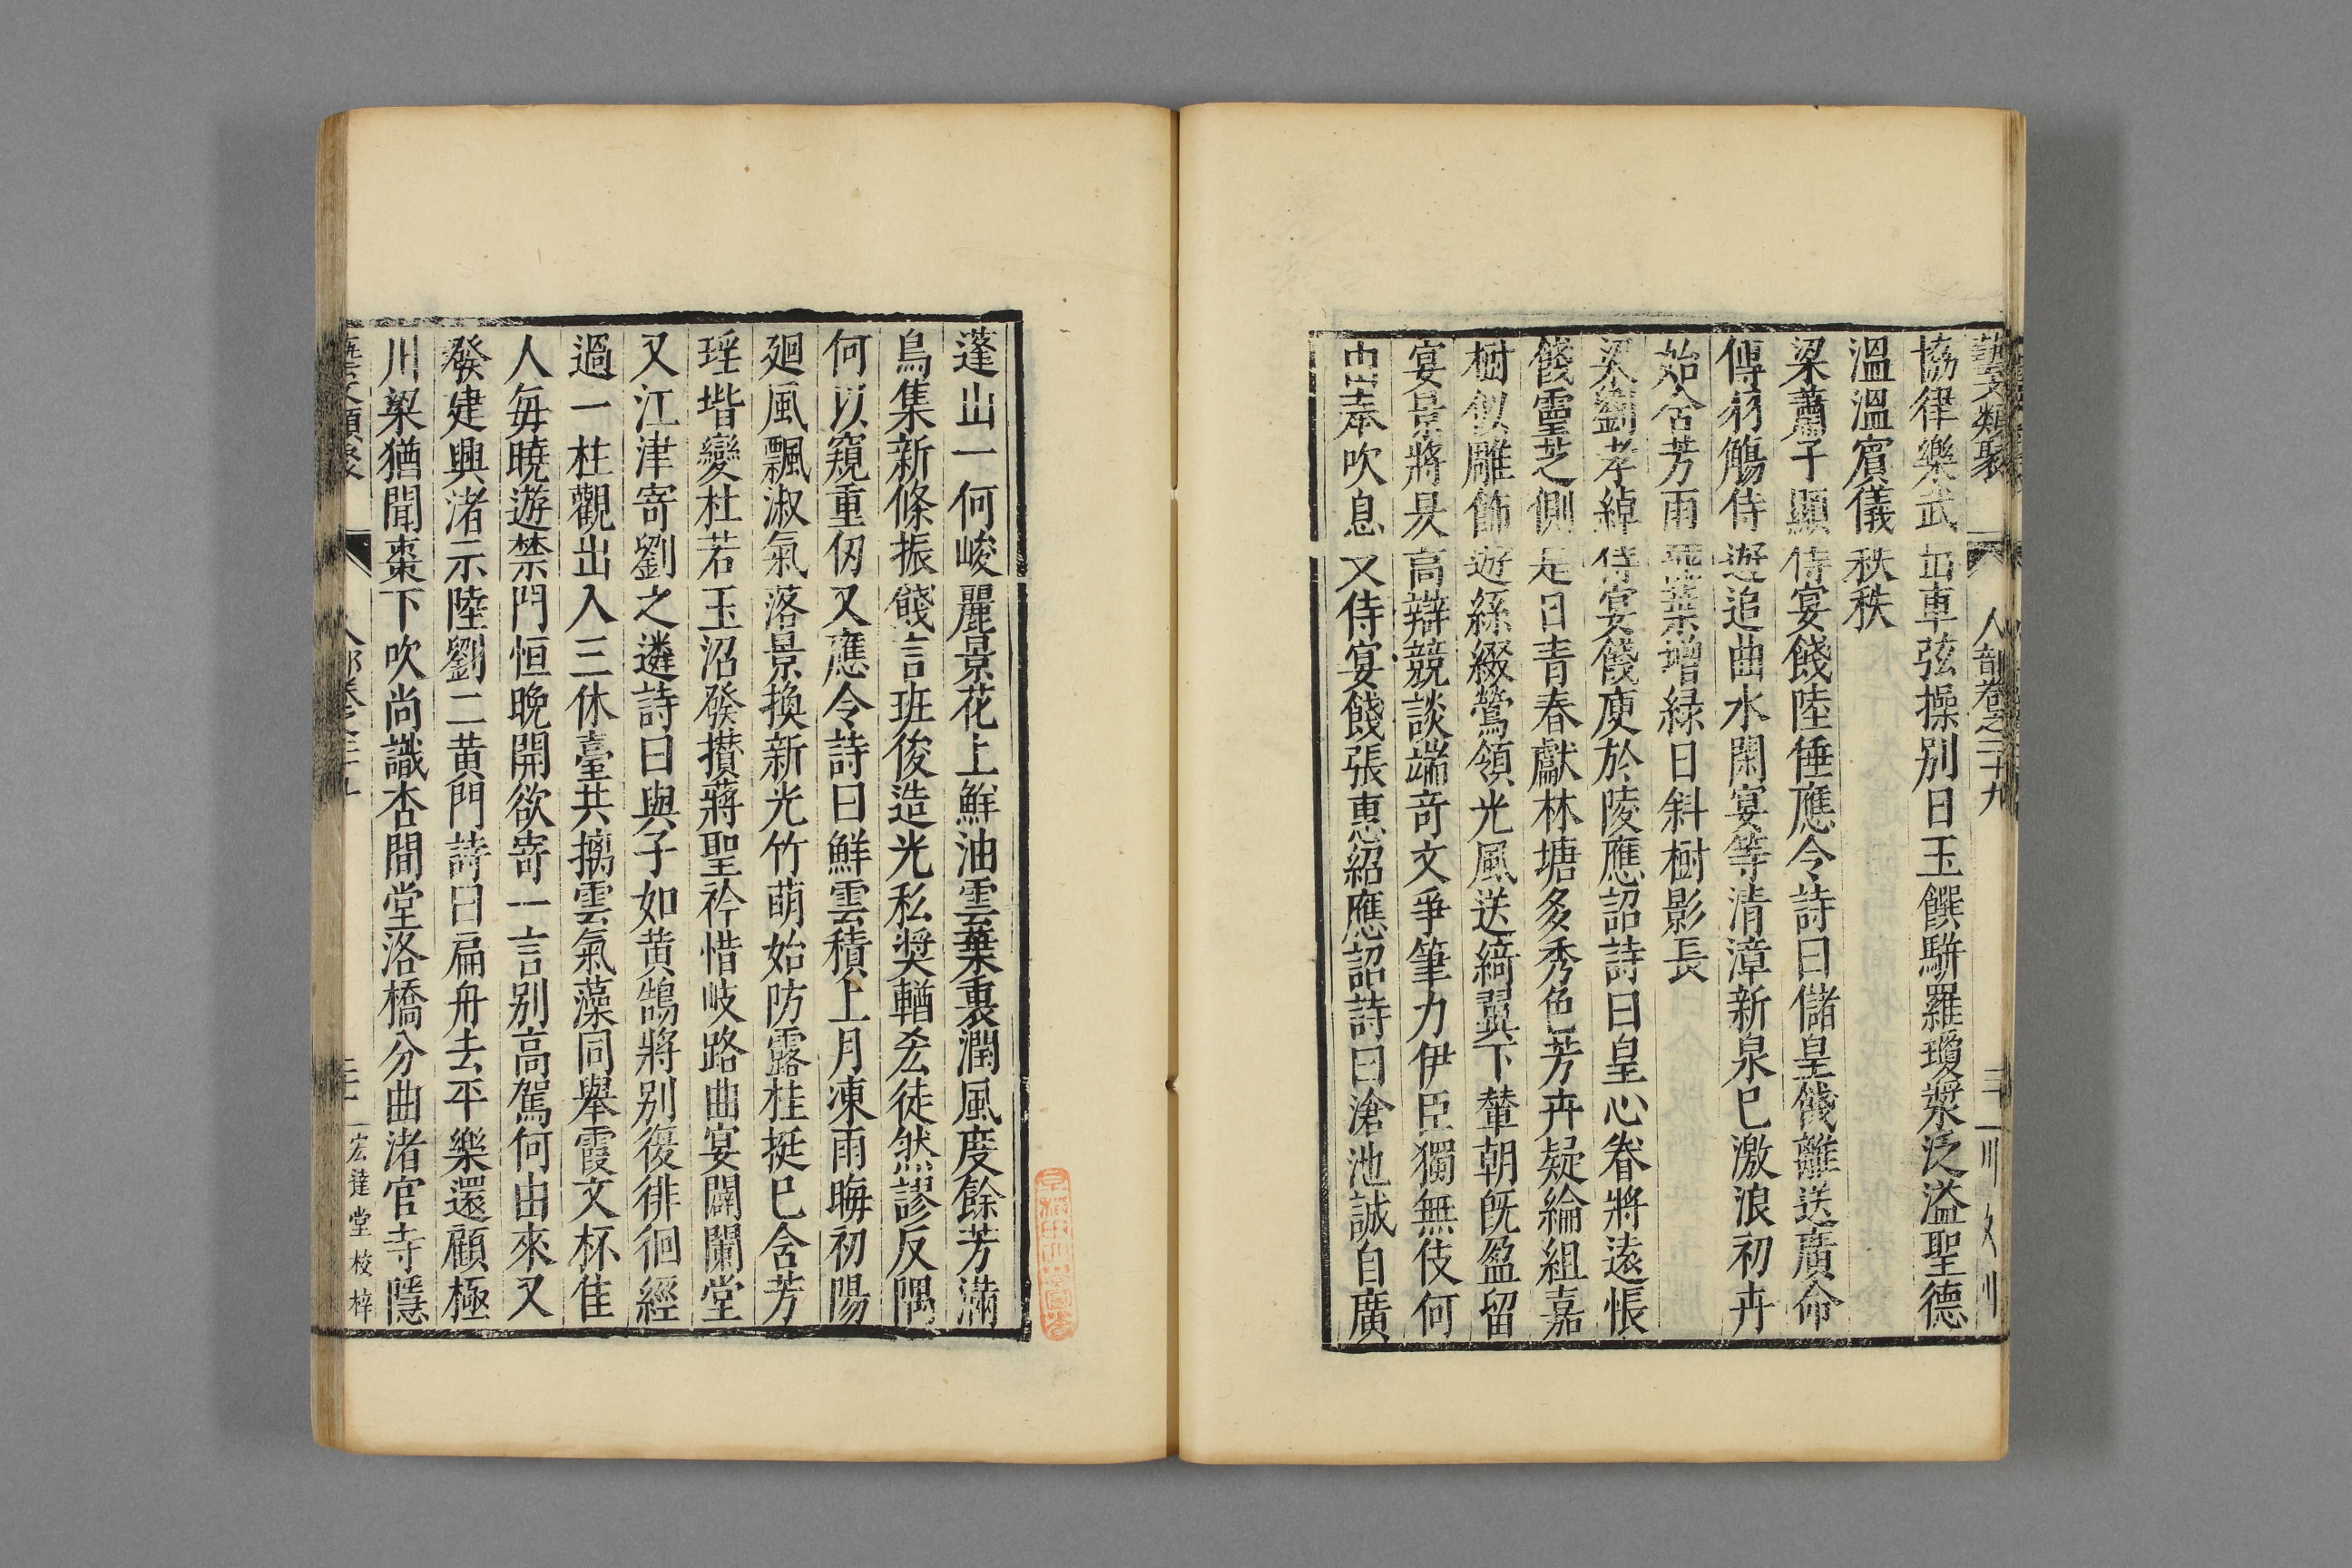 藝文類聚 人部卷之二十九
協律樂武 車弦操别日玉饌駢羅瓊漿泛溢聖德
溫溫賔儀秩秩
梁蕭子顯侍宴餞陸倕應令詩曰儲皇餞離送廣命
傅羽觴侍遊追曲水開宴等清漳新泉巳激浪初卉
始含芳雨 葉增緑日斜樹影長
梁劉孝綽侍宴餞庾於陵應詔詩曰皇心眷將遠悵
餞靈芝側是日青春獻林塘多秀色芳卉疑綸組嘉
樹似雕飾遊絲綴鶯領光風送綺翼下輦朝旣盈留
宴景將昃高辯競談端奇文爭筆力伊臣獨無伎何
奉吹息又侍宴餞張惠紹應詔詩曰滄池誠自廣
蓬山一何峻麗景花上鮮油雲葉裏潤風度餘芳滿
鳥集新條振餞言班俊造光私奬輶㐫徒然謬反隅
何以窺重仭又應令詩曰鮮雲積上月凍雨晦初陽
廻風飄淑氣落景換新光竹萌始防露桂挺巳含芳
瑶堦變杜若玉沼發攅蔣聖衿惜岐路曲宴闢蘭堂
又江津寄劉之遴詩曰與子如黃鵠將别復徘徊經
過一柱觀出入三休臺共摛雲氣藻同舉霞文杯隹
人每曉遊禁門恒晚開欲寄一言别高駕何由來又
發建興渚示陸劉二黃門詩曰扁舟去平樂還顧極
川梁猶聞棗下吹尚識杏間堂洛橋分曲渚官寺隱
宏達堂校梓